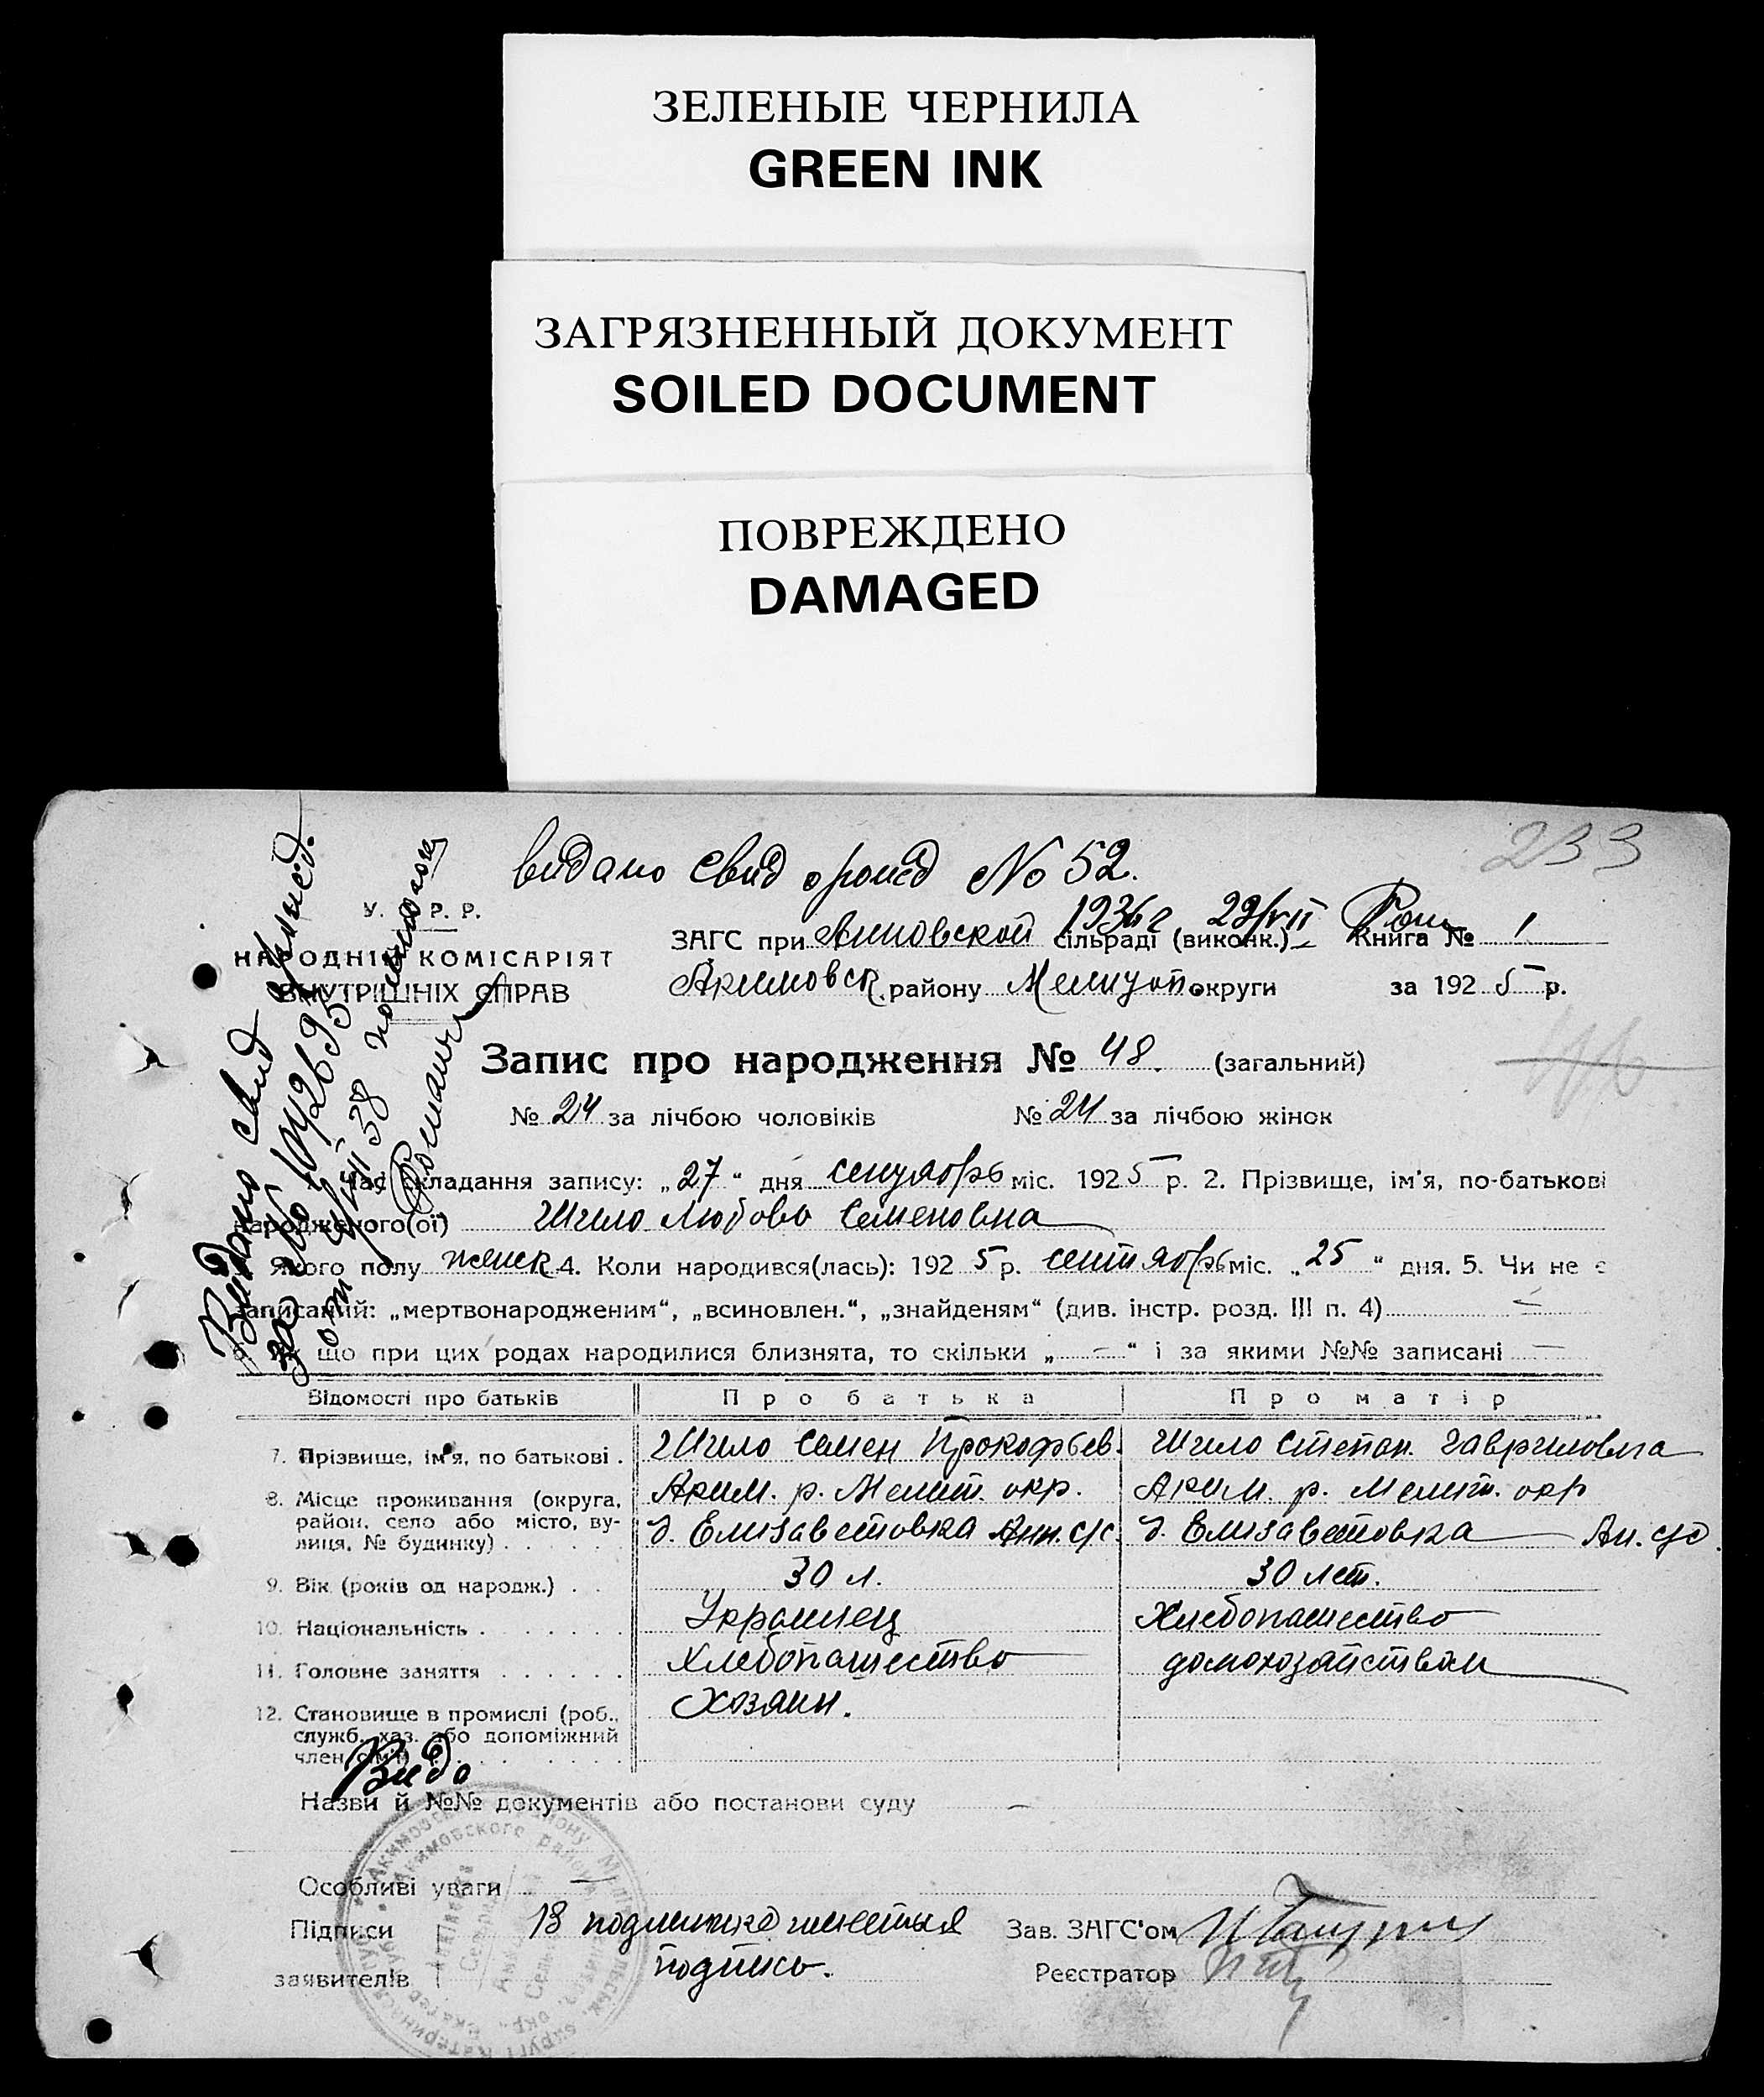 ЗЕЛЕНЫЕ ЧЕРНИЛА
GREEN INK
ЗАГРЯЗНЕННЫЙ ДОКУМЕНТ
SOILED DOCUMENT
ПОВРЕЖДЕНО
DAMAGED
233
видано свид о рожд № 52.
1936 г 23/VII
У. Р. Р.
НАРОДНІЙ КОМІСАРІЯТ
ВНУТРІШНІХ СПРАВ
Видано свид о рожд.
за №
ЗАГС при Анновской сільраді (виконк.) Книга № 1
Акимовск. району Мелитоп. округи за 1925 р.
Запис про народження № 48. (загальний)
№ 24 за лічбою чоловіків № 24 за лічбою жінок
Час складання запису: „27“ дня сентябрь міс. 1925 р. 2. Прізвище, ім'я, по-батькові
народженого(ої) Шило Любовь Семеновна
Якого полу женск 4. Коли народився(лась): 1925 р. сентябрь міс. „25“ дня. 5. Чи не є
записаний: „мертвонародженим“, „всиновлен.“, „знайденям“ (див. інстр. розд. III п. 4) —
що при цих родах народилися близнята, то скільки „—“ і за якими №№ записані —
Відомості про батьків Про батька Про матір
7. Прізвище, ім'я, по батькові . Шило Семен Прокофьев. Шило Степан. Гавриловна
8. Місце проживання (округа, район, село або місто, вулиця, № будинку) Аким. р. Мелит. окр. Аким. р. Мелит. окр
д. Елизаветовка Анн. с/с. д. Елизаветовка Ан. с/с.
9. Вік (років од народж.) . . 30 л. 30 лет.
10. Національність Украинец Хлебопашество
11. Головне заняття Хлебопашество домохозяйствам
12. Становище в промислі (роб., служб., хаз. або допоміжний член сім'ї) Хозяин.
Видо
Назви й №№ документів або постанови суду —
Особливі уваги —
Підписи заявителів В подлинике имеется подпись.
Зав. ЗАГС'ом
Реєстратор